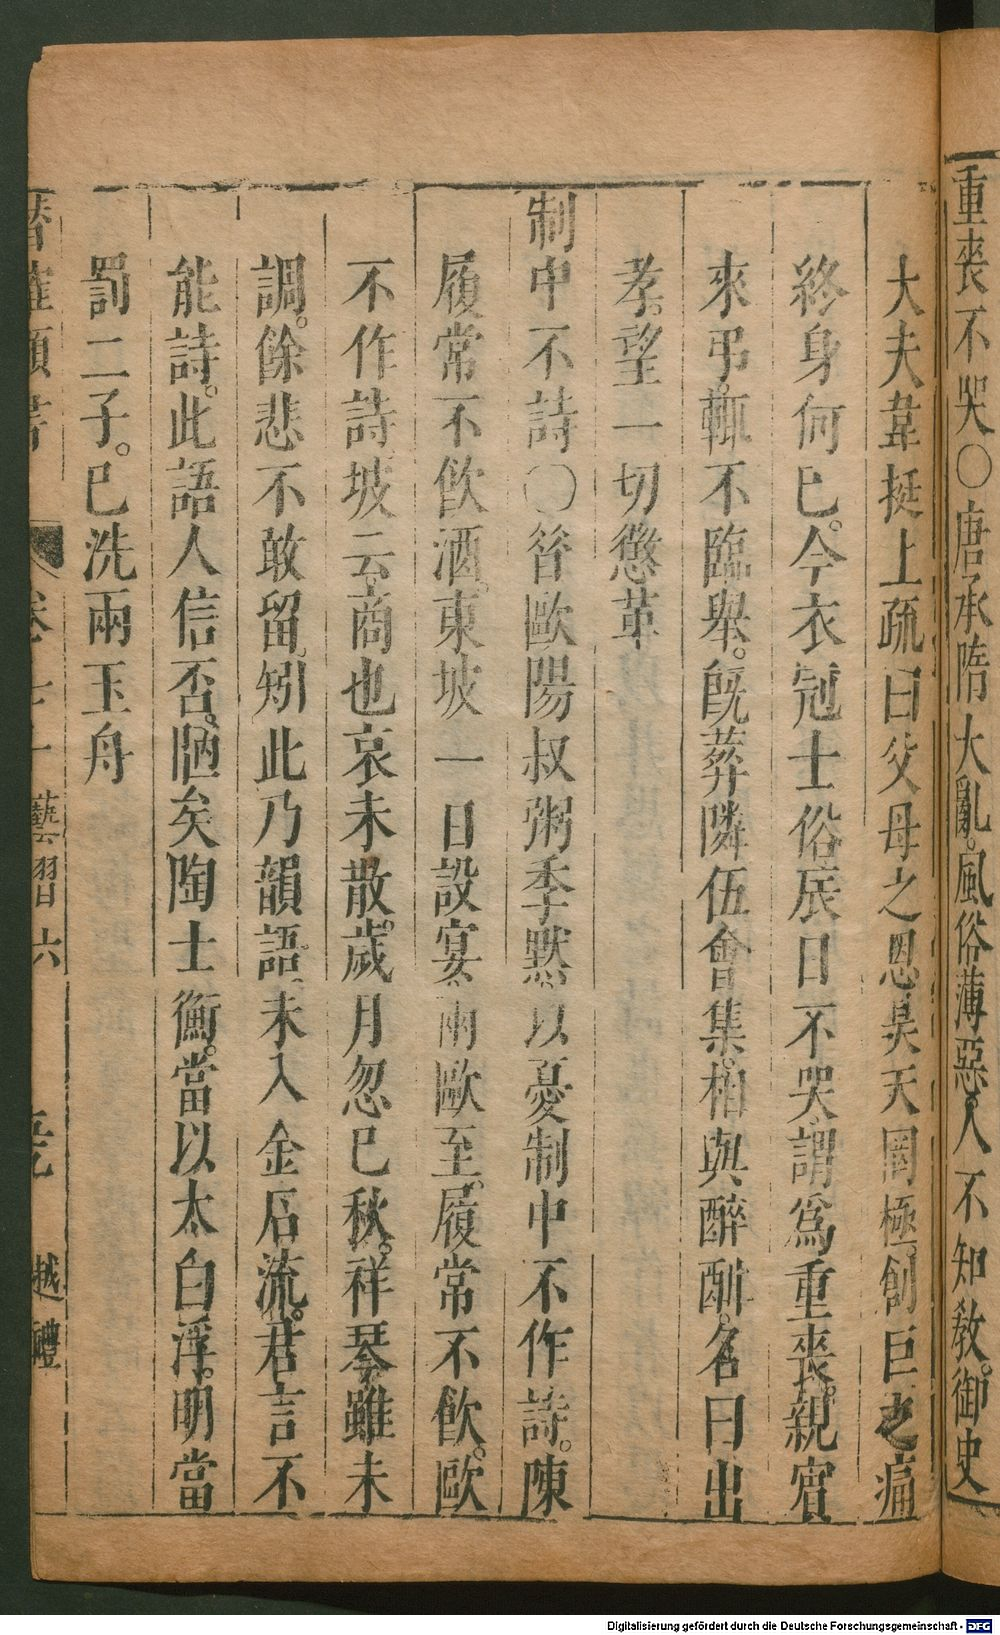 重喪不哭○唐承隋大亂風俗薄惡人不知教御史
大夫韋挺上疏曰父母之恩昊天罔極創巨之痛
終身何已今衣冠士俗辰日不哭謂爲重喪親賓
來弔輒不臨舉旣葬隣伍會集相與酣醉名曰出
孝望一切懲革
制中不詩○晉歐陽叔弼季默以憂制中不作詩陳
履常不飲酒東坡一日設宴兩歐至履常不飲歐
不作詩坡云商也哀未散歲月忽已秋祥琴雖未
調餘悲不敢留矧此乃韻語未入金石流君言不
能詩此語人信否陋矣陶士衡當以太白浮明當
罰二子已洗兩玉舟
卷 藝習六 越禮
Digitalisierung gefördert durch die Deutsche Forschungsgemeinschaft - DFG